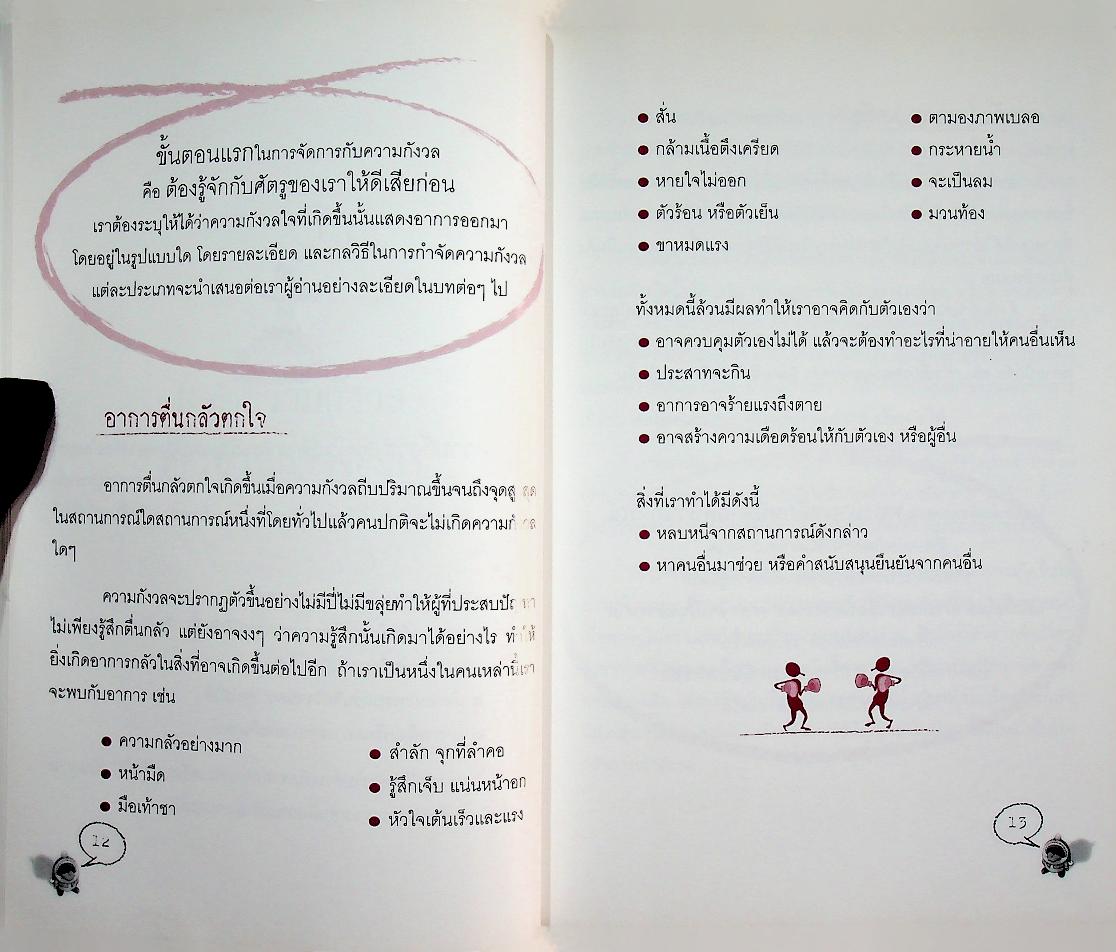 ขั้นตอนแรกในการจัดการกับความกังวล
คือ ต้องรู้จักกับศัตรูของเราให้ดีเสียก่อน
เราต้องระบุให้ได้ว่าความกังวลใจที่เกิดขึ้นนั้นแสดงอาการออกมา
โดยอยู่ในรูปแบบใด โดยรายละเอียด และกลวิธีในการกำจัดความกังวล
แต่ละประเภทจะนำเสนอต่อเราผู้อ่านอย่างละเอียดในบทต่อๆ ไป
อาการตื่นกลัวตกใจ
อาการตื่นกลัวตกใจเกิดขึ้นเมื่อความกังวลถีบปริมาณขึ้นจนถึงจุดสูงสุด
ในสถานการณ์ใดสถานการณ์หนึ่งที่โดยทั่วไปแล้วคนปกติจะไม่เกิดความกังวล
ใดๆ
ความกังวลจะปรากฏตัวขึ้นอย่างไม่มีปี่ไม่มีขลุ่ยทำให้ผู้ที่ประสบปัญหา
ไม่เพียงรู้สึกตื่นกลัว แต่ยังอาจงงๆ ว่าความรู้สึกนั้นเกิดมาได้อย่างไร ทำให้
ยิ่งเกิดอาการกลัวในสิ่งที่อาจเกิดขึ้นต่อไปอีก ถ้าเราเป็นหนึ่งในคนเหล่านี้เรา
จะพบกับอาการ เช่น
● ความกลัวอย่างมาก
● หน้ามืด
● มือเท้าชา
● สำลัก จุกที่ลำคอ
● รู้สึกเจ็บ แน่นหน้าอก
● หัวใจเต้นเร็วและแรง
12
● สั่น
● กล้ามเนื้อตึงเครียด
● หายใจไม่ออก
● ตัวร้อน หรือตัวเย็น
● ขาหมดแรง
● ตามองภาพเบลอ
● กระหายน้ำ
● จะเป็นลม
● มวนท้อง
ทั้งหมดนี้ล้วนมีผลทำให้เราอาจคิดกับตัวเองว่า
● อาจควบคุมตัวเองไม่ได้ แล้วจะต้องทำอะไรที่น่าอายให้คนอื่นเห็น
● ประสาทจะกิน
● อาการอาจร้ายแรงถึงตาย
● อาจสร้างความเดือดร้อนให้กับตัวเอง หรือผู้อื่น
สิ่งที่เราทำได้มีดังนี้
● หลบหนีจากสถานการณ์ดังกล่าว
● หาคนอื่นมาช่วย หรือคำสนับสนุนยืนยันจากคนอื่น
13